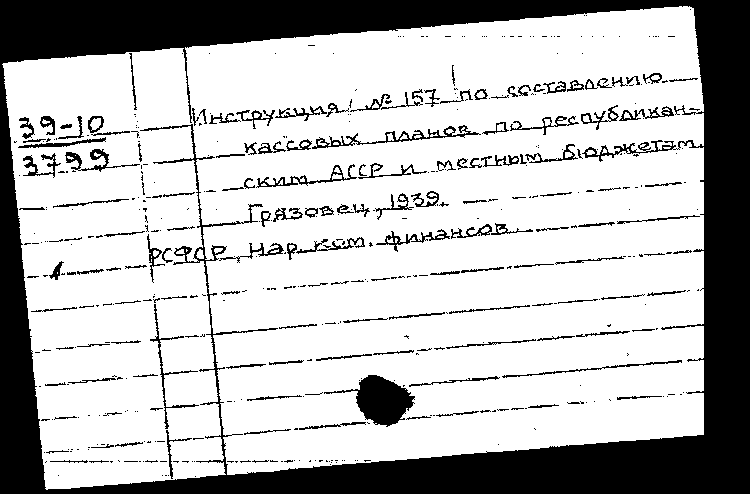 39-10
3799
Инструкция № 157 по составлению
кассовых планов по республикан-
ским АССР и местным бюджетам.
Грязовец, 1939.
РСФСР. Нар. ком. финансов
1